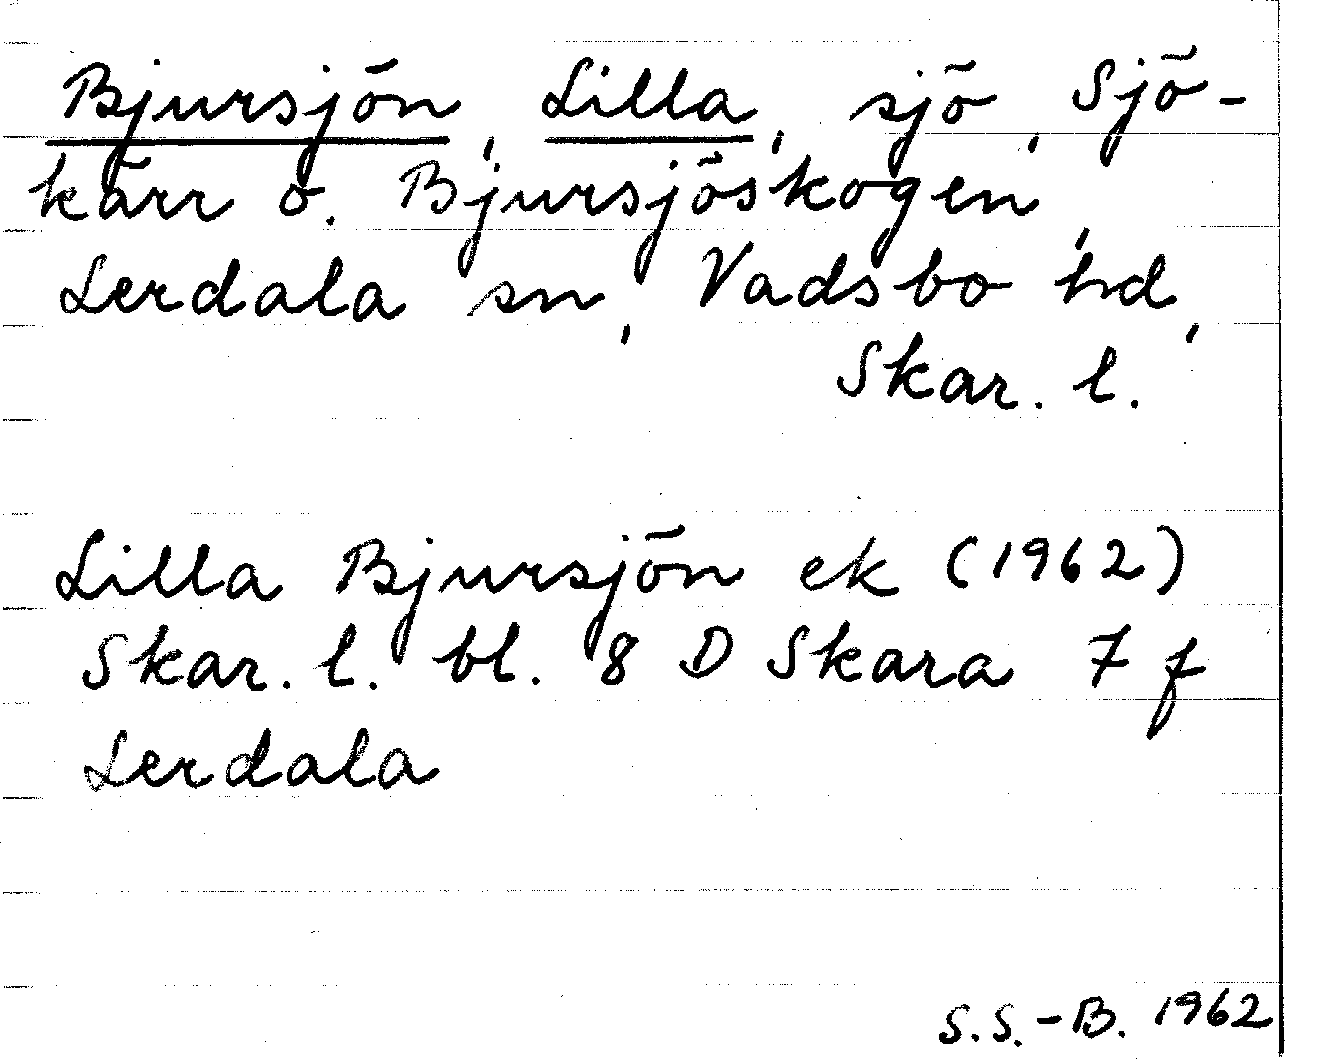 Bjursjön, Lilla, sjö, Sjö-
kärr o. Bjursjöskogen,
Lerdala sn, Vadsbo hd,
Skar. l.
Lilla Bjursjön ek (1962)
Skar. l. bl. 8 D Skara 7 f
Lerdala
S.S.-B. 1962